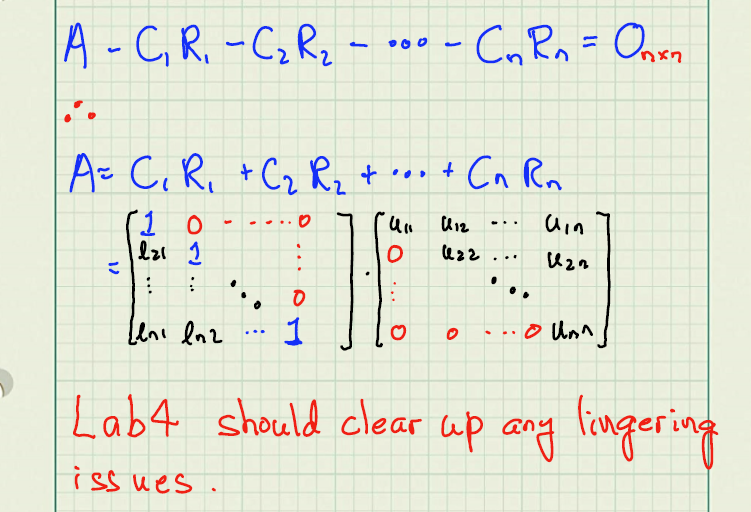 A - C₁R₁ - C₂R₂ - ... - CₙRₙ = Oₙₓₙ
∴
A = C₁R₁ + C₂R₂ + ... + CₙRₙ
= [1 0 - - ... 0] . [u₁₁ u₁₂ ... u₁ₙ]
[l₂₁ 1 ⋮] [0 u₂₂ ... u₂ₙ]
[⋮ ⋮ ⋱ 0] [⋮ ⋱]
[lₙ₁ lₙ₂ ... 1] [0 0 ... 0 uₙₙ]
Lab4 should clear up any lingering
issues.